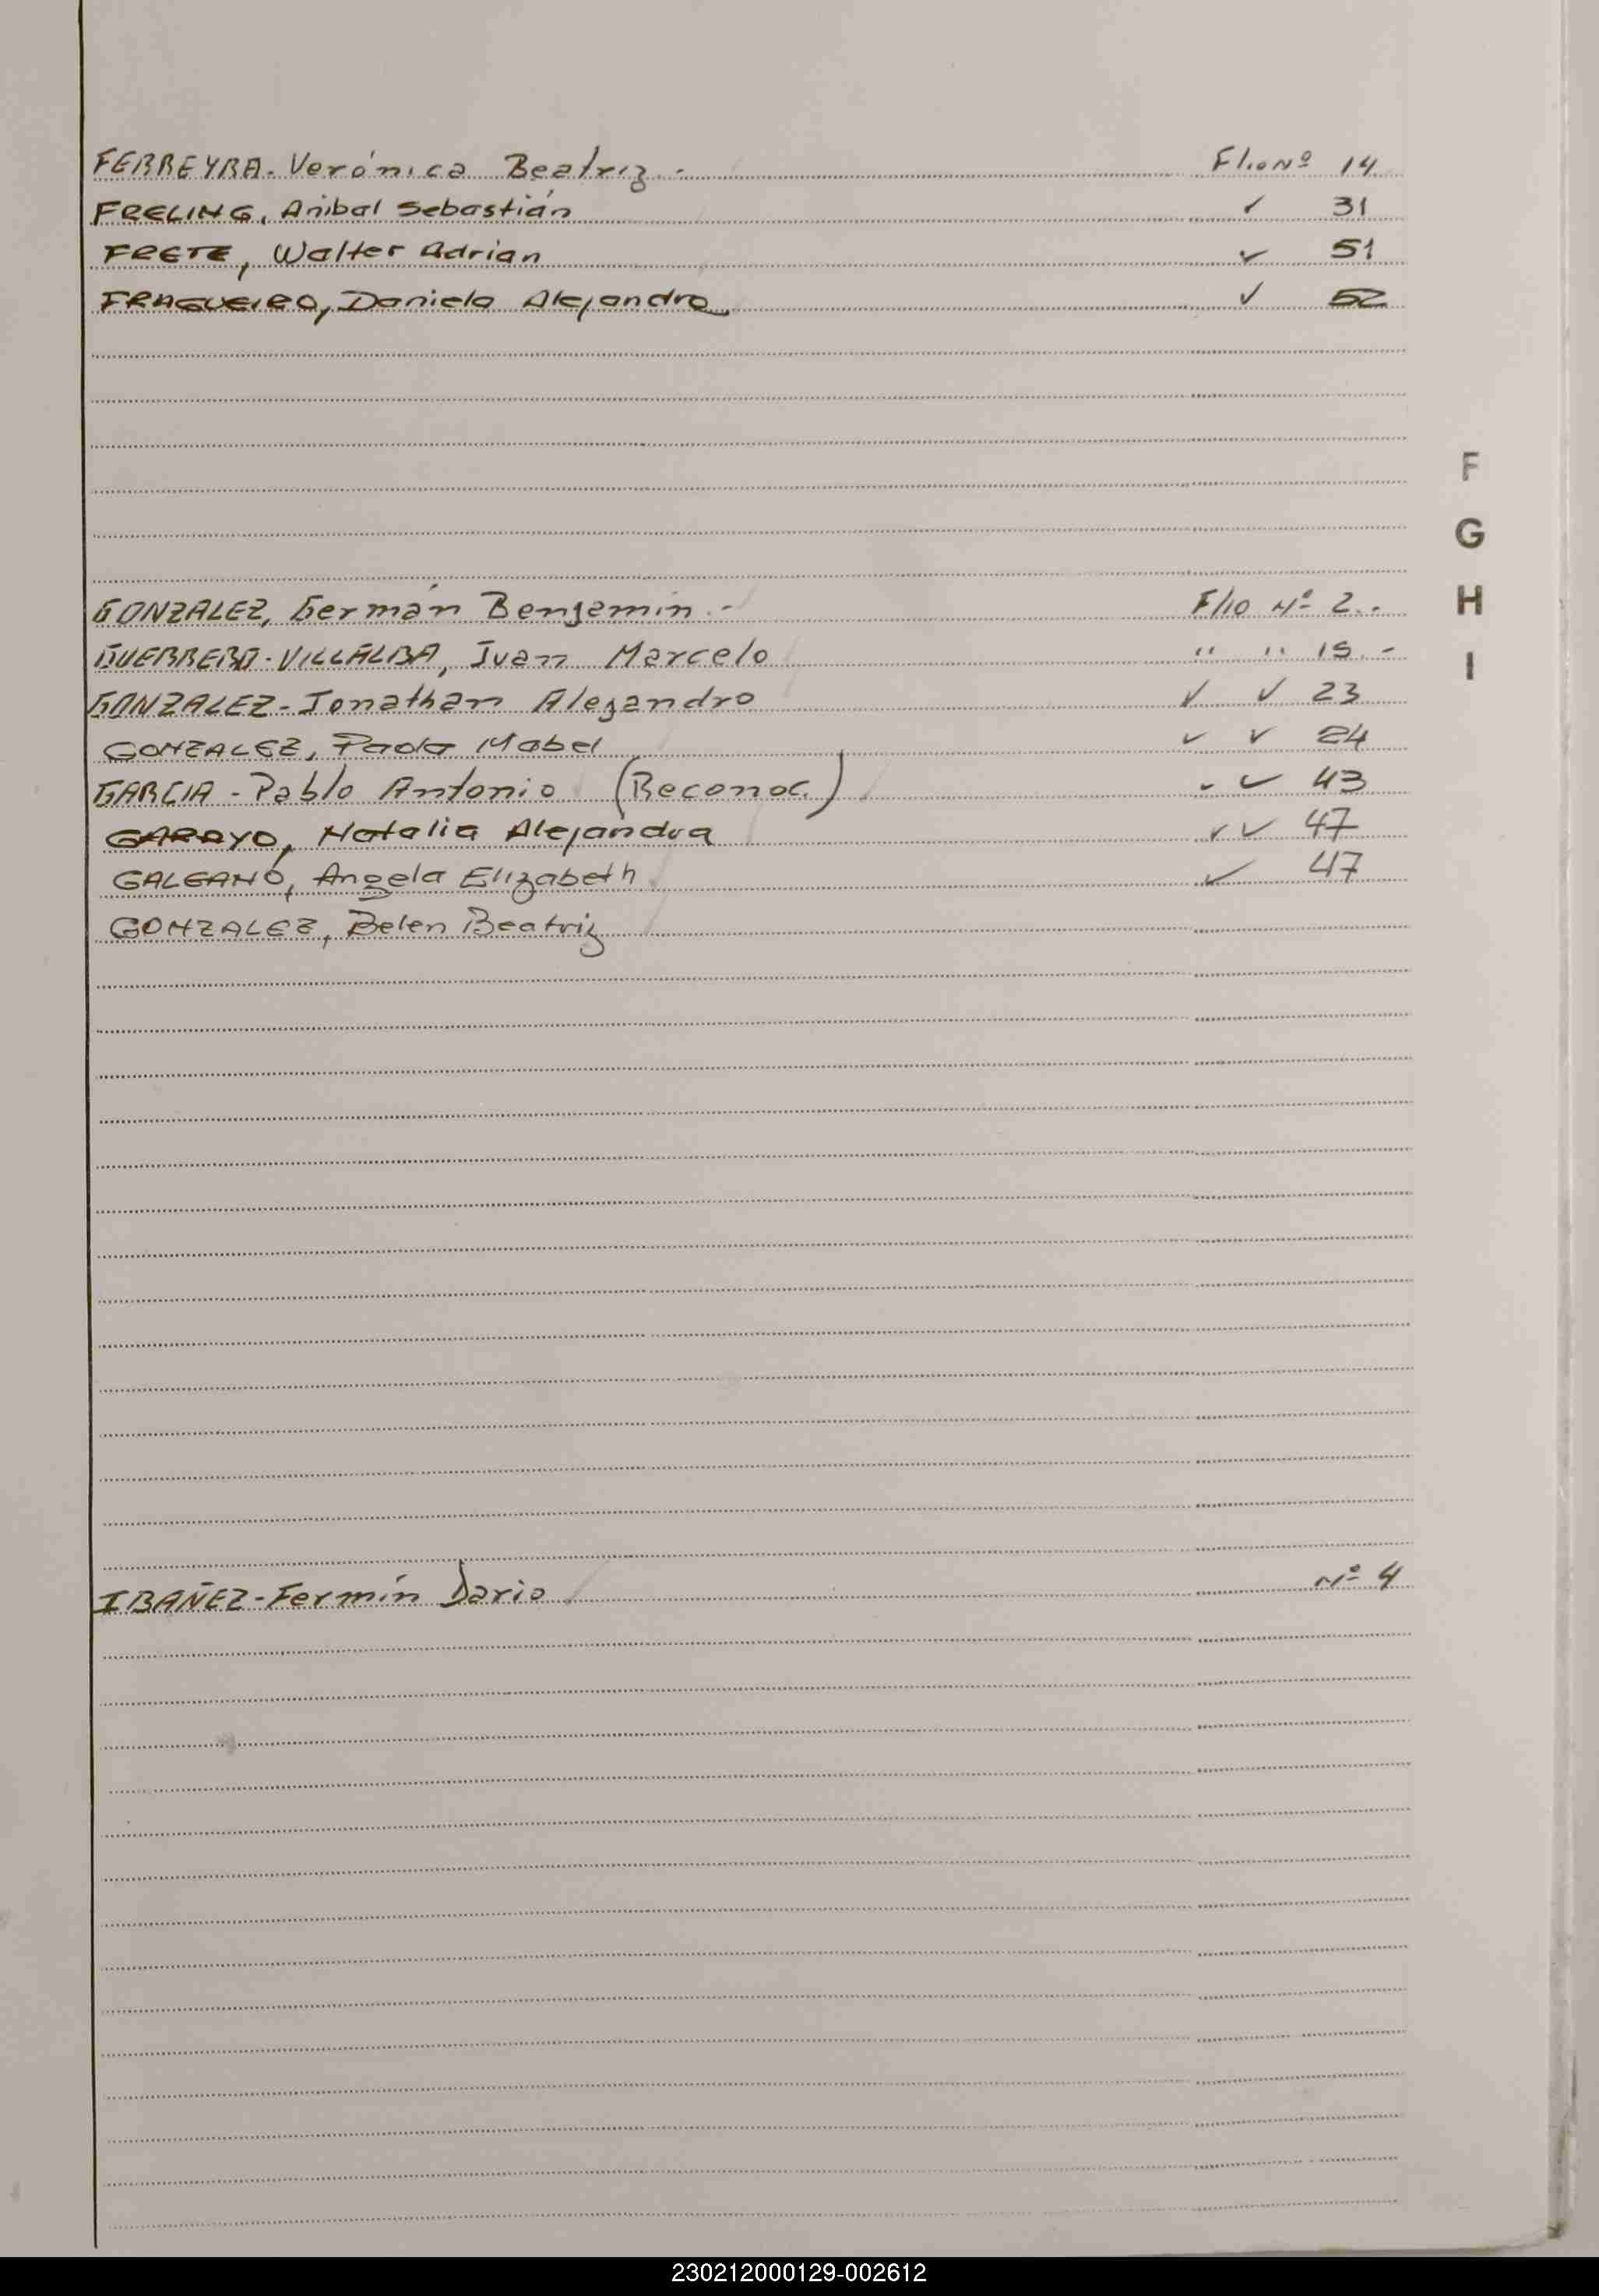 FERREYRA. Verónica Beatriz. - Flio Nº 14
FRELING, Anibal Sebastián ✓ 31
FRETE, Walter Adrian ✓ 51
FRAGUEIRO, Daniela Alejandra ✓ 52
F
G
H
I
GONZALEZ, Germán Benjamín. - Flio Nº 2. -
GUERRERO-VILLALBA, Ivan Marcelo " " 15. -
GONZALEZ - Jonathan Alejandro ✓ ✓ 23
GONZALEZ, Paola Mabel ✓ ✓ 24
GARCIA - Pablo Antonio (Reconoc.) ✓ ✓ 43
GARAYO, Natalia Alejandra ✓ ✓ 47
GALEANO, Angela Elizabeth ✓ 47
GONZALEZ, Belen Beatriz
IBAÑEZ - Fermín Dario Nº 4
230212000129-002612